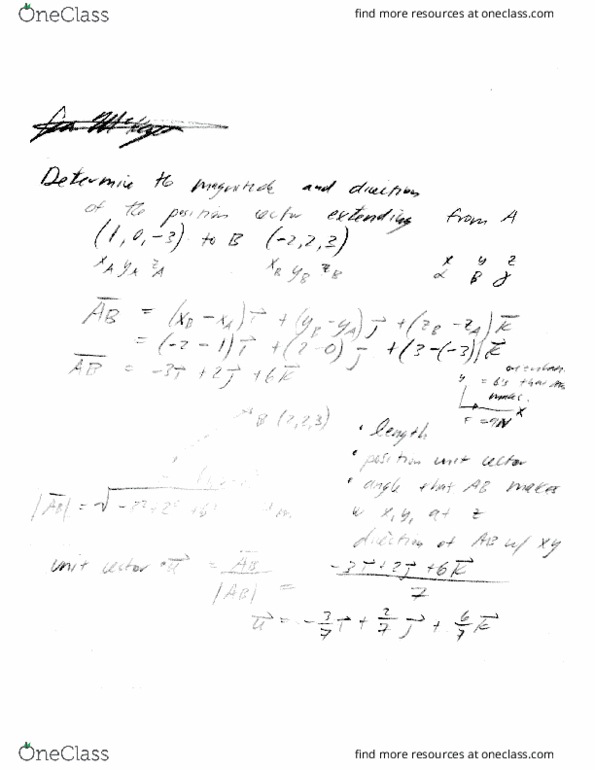 OneClass
find more resources at oneclass.com
Determine the magnitude and direction
of the position vector extending from A
(1, 0, -3) to B (-2, 2, 3)
x_A y_A z_A x_B y_B z_B
x y z
α β γ
AB = (x_B - x_A) i + (y_B - y_A) j + (z_B - z_A) k
= (-2 - 1) i + (2 - 0) j + (3 - (-3)) k
AB = -3i + 2j + 6k
y
x
B (2, 2, 3)
• length
• position unit vector
• angle that AB makes
w x, y, at z
direction of AB w/ xy
|AB| = √
unit vector u = AB / |AB| = -3i + 2j + 6k / 7
u = -3/7 i + 2/7 j + 6/7 k
OneClass
find more resources at oneclass.com